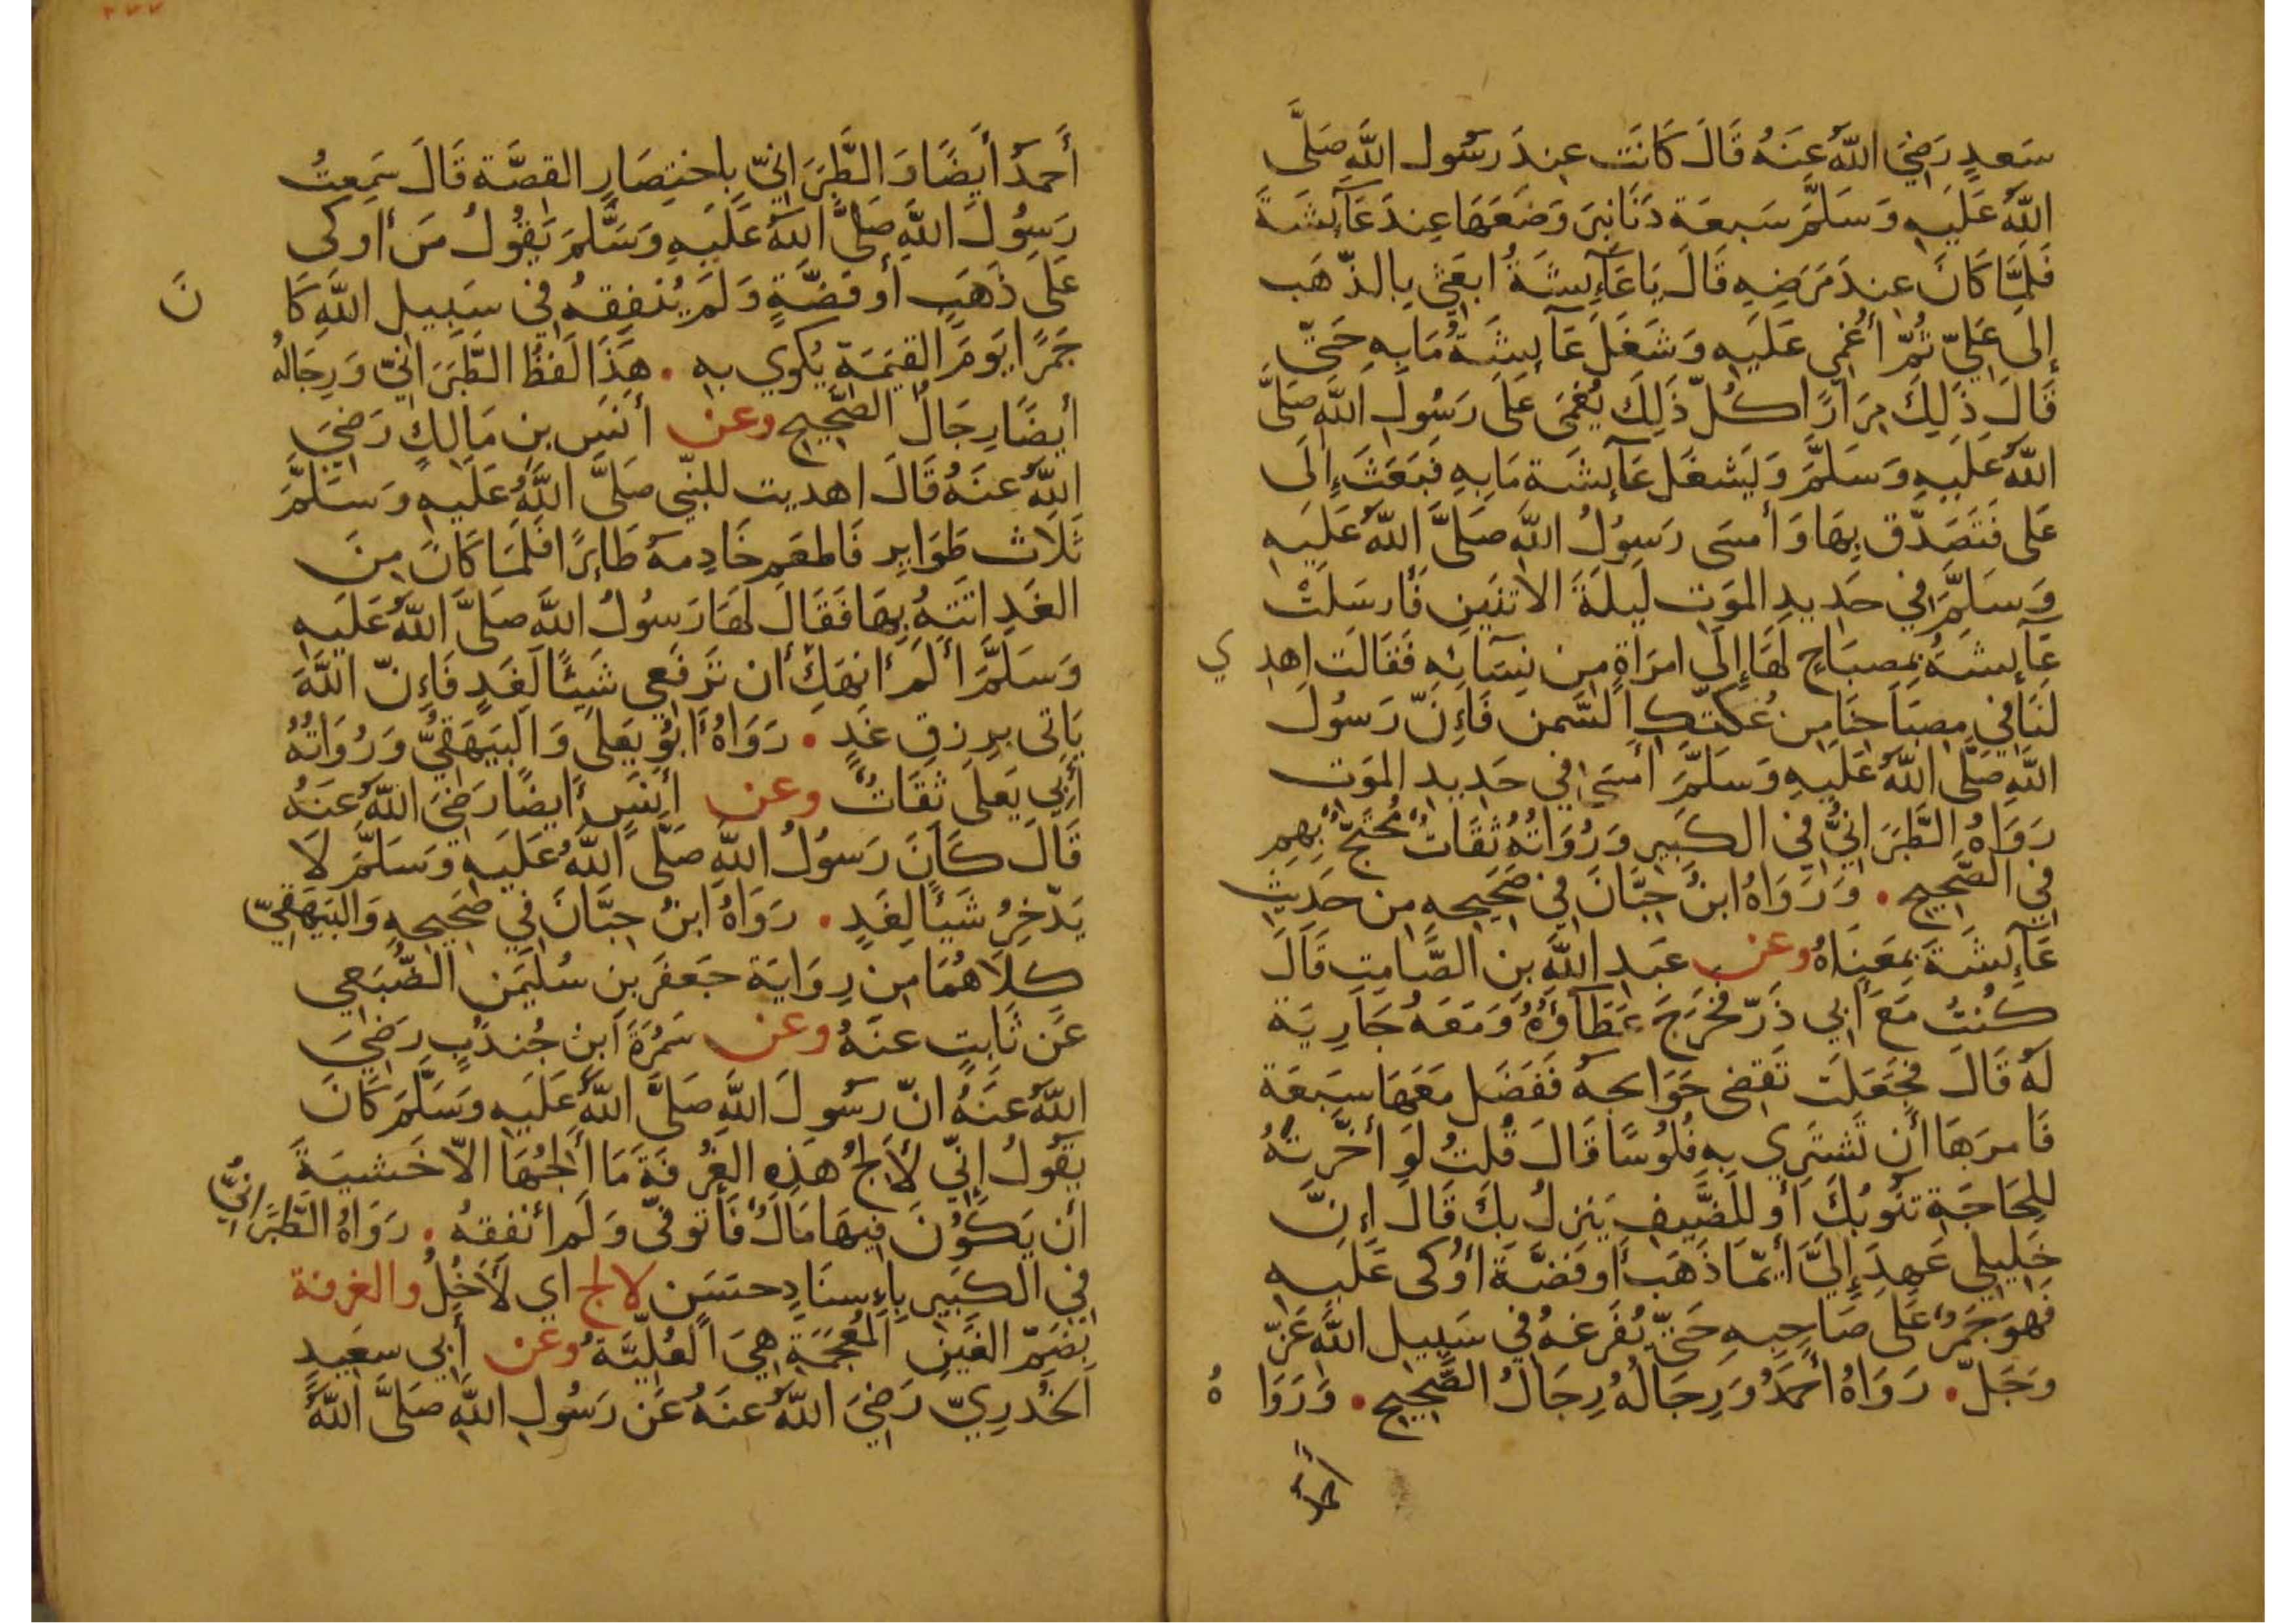 سَعدٍ رَضِيَ اللّٰهُ عَنَهُ قَالَ كَانَت عِندَ رَسُول اللّٰهِ صَلَّى
اللّٰهُ عَلَيهِ وَسَلَّمَ سَبعَة دَنَانِيَر وَضَعَهَا عِندَ عَآئِشَةَ
فَلَمَّا كَانَ عِندَ مَرَضِهِ قَالَ يَا عَآئِشَةُ ابعَثِي بِالذّهَب
إلى عَلِيّ ثُمّ أُغمِي عَلَيهِ وَشَغَلَ عَآئِشَةُ مَا بِهِ حَتّى
قَالَ ذَلِكَ مِرَارًا كُلّ ذَلِكَ يُغمَى عَلى رَسُولِ اللّٰهِ صَلَّى
اللّٰهُ عَلَيهِ وَسَلَّمَ وَيَشغَل عَآئِشَة مَا بِهِ فَبَعَثَ إِلَى
عَلى فَتَصَدَّق بِهَا وَأمسَى رَسوُلُ اللّٰهِ صَلَّى اللّٰهُ عَلَيهِ
وَسَلَّمَ في حَدِيدِ المَوت لَيلَةَ الاثنَينِ فَأرسَلَتْ
عَآئِشَةُ بِمِصبَاحٍ لَهَا إِلَى امرَأةٍ مِن نِسَآئِهِ فَقَالَت اهدِ ي
لَنَا فِي مِصبَاحِنَا مِن عُكّتِكِ السَّمنَ فَإِنّ رَسُولَ
اللّٰهِ صَلَّى اللّٰهُ عَلَيهِ وَسَلَّمَ أمسَى فِي حَدِيدِ المَوت
رَوَاهُ الطَّبَرَانِيُّ فِي الكَبِير وَرُوَاتُهُ ثِقَاتٌ مُحتَجٌّ بِهِم
في الصَّحِيحِ . وَرَوَاهُ ابنُ حِبَّانَ فِي صَحِيحِهِ مِن حَدِيثِ
عَآئِشَةَ بِمَعنَاهُ وعن عَبدِ اللّٰهِ بنِ الصَّامِتِ قَالَ
كُنتُ مَعَ أبِي ذَرّ فَخَرَجَ عَطَآؤُهُ وَمَعَهُ جَارِيَة
لَهُ قَالَ فَجَعَلَت تَقضِى حَوَائجه فَفَضَل مَعَهَا سَبعَة
فَامرَهَا أن تَشتَرِي بِهِ فُلُوسًا قَالَ قُلتُ لَو أخَّرتَهُ
لِلحَاجَةِ تَنُوبُكَ أو لِلضَّيفِ يَنزِلُ بِكَ قَالَ إِنَّ
خَلِيلِي عَهِدَ إِلَيَّ أيّمَا ذَهَب أو فضَّةٍ أُوكَى عَلَيهِ
فَهوَ جَمرٌ عَلَى صَاحِبِهِ حَتّى يُفرَغهُ في سَبِيلِ اللّٰهِ عَزّ
وَجَلّ . رَوَاهُ أحمَدُ وَرِجَالُهُ رِجَالُ الصَّحِيحِ . وَرَوَا هُ
أحمَدُ أيضًا وَالطَّبَرَانِيّ بِاختِصَارِ القصَّة قَالَ سَمِعتُ
رَسوُلَ اللّٰهِ صَلَّى اللّٰهُ عَلَيهِ وَسَلَّمَ يَقُولُ مَن أوكى
عَلى ذَهَبٍ أو فضَّةٍ وَلَم يُنفِقهُ فِي سَبِيلِ اللّٰهِ كَا نَ
جَمرًا يَومَ القِيَمَةِ يُكوي بِهِ . هَذَا لَفظُ الطَّبَرَانِيّ وَرِجَالهُ
أيضًا رِجَالُ الصَّحِيحِ وعن أنَسِ بنِ مَالِكٍ رَضِيَ
اللّٰهُ عنَهُ قَالَ اهديت للنّبي صَلَّى اللّٰهُ عَلَيهِ وَسَلَّمَ
ثَلَاث طَوَايِر فَاطعَم خَادِمهُ طَائِرًا فَلَمَا كَانَ مِنَ
الغَدِ اتَتهُ بِهَا فَقَالَ لَهَا رَسُولُ اللّٰهِ صَلَّى اللّٰهُ عَلَيهِ
وَسَلَّمَ ألَم أنهَكِ أن تَرفَعِي شَيئًا لِغَدٍ فَإِنّ اللّٰهَ
يَاتِى بِرِزقِ غَدٍ . رَوَاهُ أبُو يَعلَى وَالبَيهَقِيُّ وَرُوَاتُهُ
أبِي يَعلَى ثِقَاتٌ وعن أنَسٍ أيضًا رَضِيَ اللّٰهُ عنَهُ
قَالَ كَانَ رَسوُلُ اللّٰهِ صَلَّى اللّٰهُ عَلَيهِ وَسَلَّمَ لَا
يَدّخِرُ شَيئًا لِغَدٍ . رَوَاهُ ابنُ حِبَّانَ فِي صَحِيحِهِ وَالبَيهَقِيّ
كِلَاهُمَا مِن رِوَايَة جَعفَر بنِ سُلَيمَن الضُّبَعِي
عَن ثَابِتٍ عنَهُ وعن سَمُرَةَ ابنِ جُندَبٍ رَضِيَ
اللّٰهُ عنَهُ انّ رَسُولَ اللّٰهِ صَلَّى اللّٰهُ عَلَيهِ وَسَلَّمَ كَانَ
يَقُولُ إِنِّي لَألِجُ هَذِهِ الغُرفَةَ مَا ألِجُهَا الّا خَشيَةَ
أن يَكَوُنَ فِيهَا مَالٌ فَأتَوفّى وَلَم أنفِقهُ . رَوَاهُ الطَّبَرَانِيُّ
فِي الكَبِير بِإِسنَادٍ حسَن لالج اي لَأدخُلُ والغرفة
بِضَمّ الغَينِ المُعجَمَةِ هِيَ العُلِيَّة وعَن أبي سعَيدٍ
الخُدرِيّ رَضِيَ اللّٰهُ عنَهُ عَن رَسُولِ اللّٰهِ صَلَّى اللّٰهُ